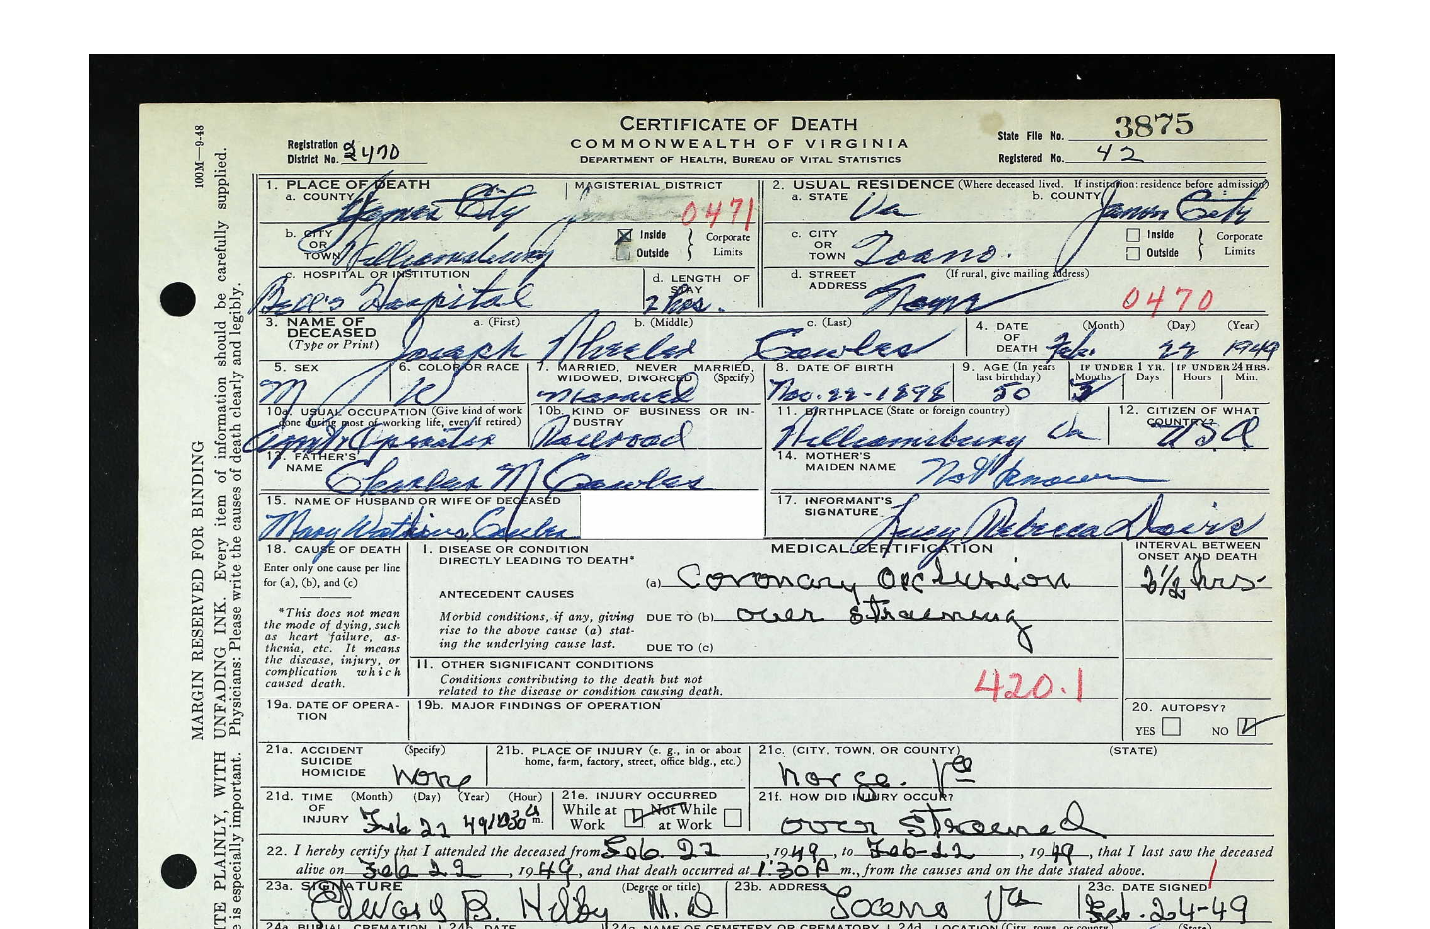 CERTIFICATE OF DEATH
COMMONWEALTH OF VIRGINIA
DEPARTMENT OF HEALTH, BUREAU OF VITAL STATISTICS
Registration District No. 2470
State File No. 3875
Registered No. 42
100M—9-48
MARGIN RESERVED FOR BINDING
WRITE PLAINLY, WITH UNFADING INK. Every item of information should be carefully supplied.
is especially important. Physicians: Please write the causes of death clearly and legibly.
1. PLACE OF DEATH
a. COUNTY James City
MAGISTERIAL DISTRICT
0471
b. CITY OR TOWN Williamsburg
Inside Outside Corporate Limits
c. HOSPITAL OR INSTITUTION
Bell's Hospital
d. LENGTH OF STAY
2 hrs.
2. USUAL RESIDENCE (Where deceased lived. If institution: residence before admission)
a. STATE Va
b. COUNTY James City
c. CITY OR TOWN Toano.
Inside Outside Corporate Limits
d. STREET ADDRESS (If rural, give mailing address)
0470
3. NAME OF DECEASED (Type or Print)
a. (First) Joseph
b. (Middle) Wheeler
c. (Last) Cowles
4. DATE OF DEATH (Month) (Day) (Year)
Feb. 22 1949
5. SEX
M
6. COLOR OR RACE
W
7. MARRIED, NEVER MARRIED, WIDOWED, DIVORCED (Specify)
Married
8. DATE OF BIRTH
Nov. 22-1898
9. AGE (In years last birthday)
50
IF UNDER 1 YR. Months Days
3
IF UNDER 24 HRS. Hours Min.
10a. USUAL OCCUPATION (Give kind of work done during most of working life, even if retired)
Agent Operator
10b. KIND OF BUSINESS OR INDUSTRY
Railroad
11. BIRTHPLACE (State or foreign country)
Williamsburg Va
12. CITIZEN OF WHAT COUNTRY?
USA
13. FATHER'S NAME
Charles M Cowles
14. MOTHER'S MAIDEN NAME
Not Known
15. NAME OF HUSBAND OR WIFE OF DECEASED
Mary Watkins Cowles
17. INFORMANT'S SIGNATURE
Lucy Rebecca Davis
18. CAUSE OF DEATH
Enter only one cause per line for (a), (b), and (c)
*This does not mean the mode of dying, such as heart failure, asthenia, etc. It means the disease, injury, or complication which caused death.
MEDICAL CERTIFICATION
INTERVAL BETWEEN ONSET AND DEATH
I. DISEASE OR CONDITION DIRECTLY LEADING TO DEATH*
(a) Coronary occlusion
2 1/2 hrs-
ANTECEDENT CAUSES
Morbid conditions, if any, giving rise to the above cause (a) stating the underlying cause last.
DUE TO (b) over straining
DUE TO (c)
II. OTHER SIGNIFICANT CONDITIONS
Conditions contributing to the death but not related to the disease or condition causing death.
420.1
19a. DATE OF OPERATION
19b. MAJOR FINDINGS OF OPERATION
20. AUTOPSY?
YES NO
21a. ACCIDENT SUICIDE HOMICIDE (Specify)
None
21b. PLACE OF INJURY (e. g., in or about home, farm, factory, street, office bldg., etc.)
21c. (CITY, TOWN, OR COUNTY) (STATE)
Norge. Va
21d. TIME OF INJURY (Month) (Day) (Year) (Hour)
Feb 22 49 m.
21e. INJURY OCCURRED
While at Work Not While at Work
21f. HOW DID INJURY OCCUR?
over strained
22. I hereby certify that I attended the deceased from Feb. 22, 1949, to Feb-22, 1949, that I last saw the deceased
alive on Feb 22, 1949, and that death occurred at 1:30 P m., from the causes and on the date stated above.
23a. SIGNATURE (Degree or title)
Edward B. M.D
23b. ADDRESS
Toano Va
23c. DATE SIGNED
Feb. 24-49
24a. BURIAL, CREMATION
24b. DATE
24c. NAME OF CEMETERY OR CREMATORY
24d. LOCATION (City, town, or county) (State)